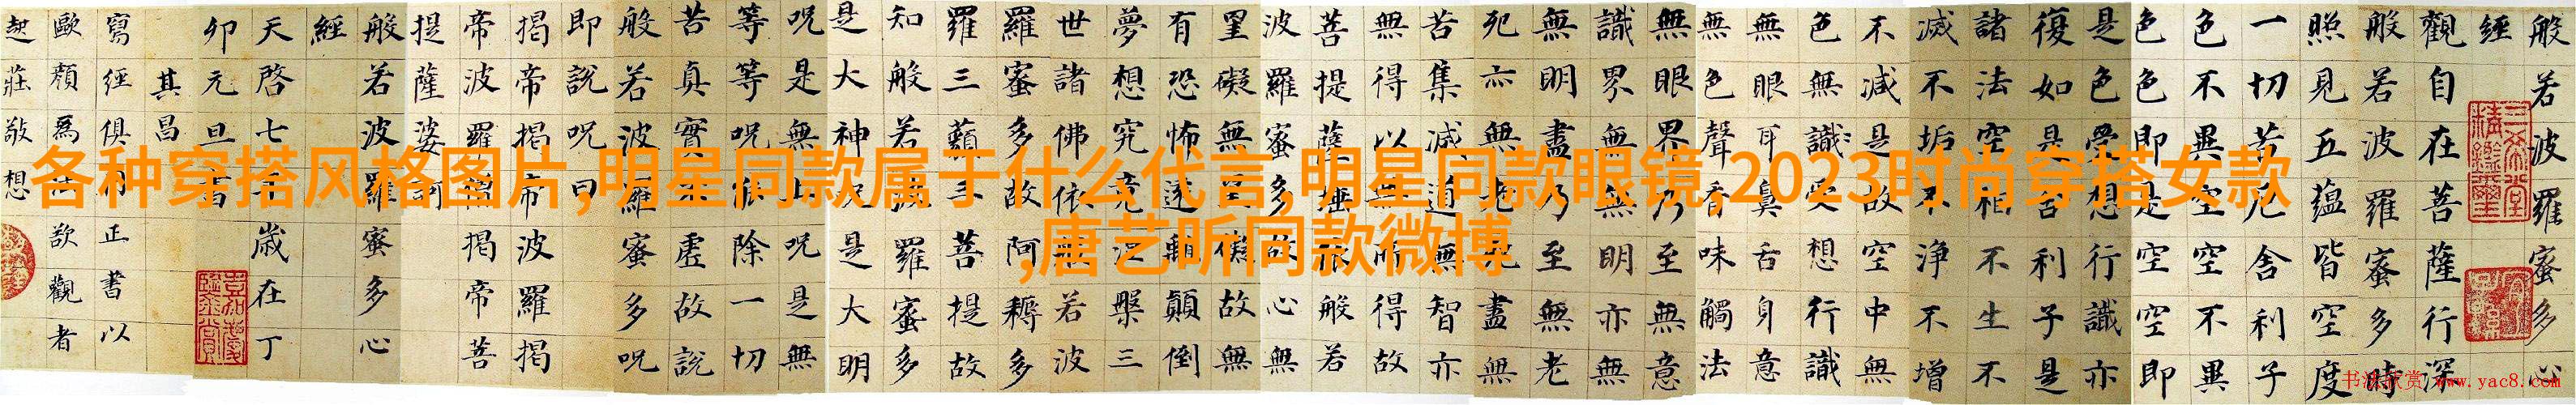 般若波羅蜜多心
經
觀自在菩薩行深
般若波羅蜜多時
照見五蘊皆空度
一切苦厄舍利子
色不異空空不異
色色即是空空即
是色受想行識亦
復如是舍利子是
諸法空相不生不
滅不垢不淨不增
不減是故空中無
色無識受想行識
無眼耳鼻舌身意
無色聲香味觸法
無眼界乃至無意
識界無無明亦無
無明盡乃至無老
死亦無老死盡無
苦集滅道無智亦
無得以無所得故
菩提薩埵依般若
波羅蜜多故心無
罣礙無罣礙故無
有恐怖遠離顛倒
夢想究竟涅槃三
世諸佛依般若波
羅蜜多故阿耨多
羅三藐三菩提故
知般若波羅蜜多
是大神咒是大明
呪是無上呪是無
等等呪能除一切
苦真實不虛故說
般若波羅蜜多呪
即說呪曰
揭帝揭帝波羅揭
帝波羅僧揭帝菩
提薩婆訶
般若波羅蜜多心
經
天啓七年歲在丁
卯元旦書
其昌
寫經俱用正書以
歐顏爲法欲觀者
起莊敬想
各种穿搭风格图片,明星同款属于什么代言,明星同款眼镜,2023时尚穿搭女款
,唐艺昕同款微博
书法欣赏 www.yac8.com